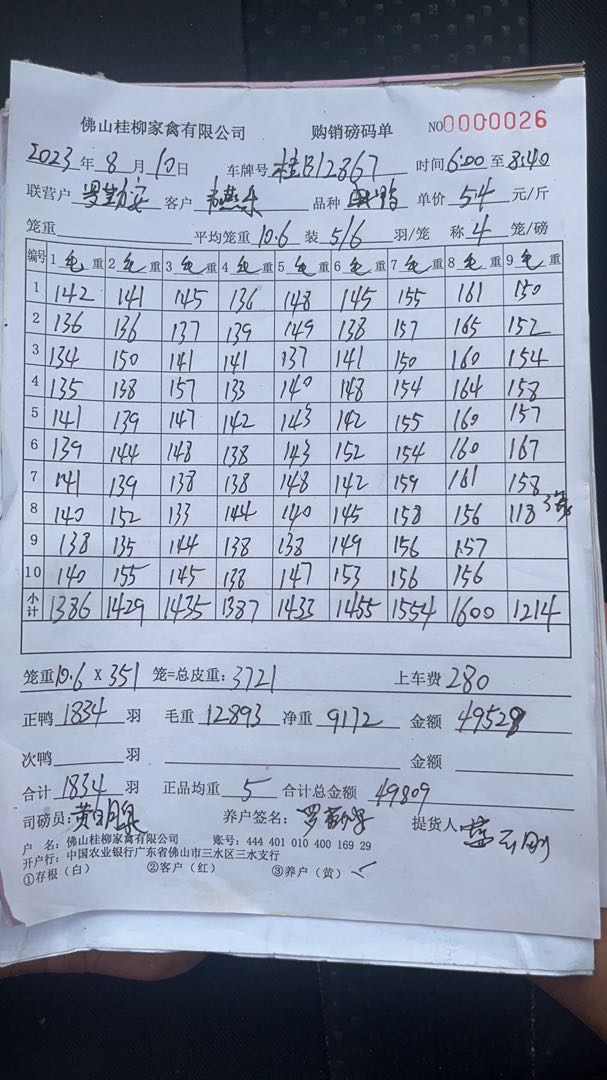 佛山桂柳家禽有限公司 购销磅码单 NO0000026
2023年8月10日 车牌号桂B12867 时间6:00至8:40
联营户 客户 品种 单价5.4元/斤
笼重 平均笼重10.6装5/6羽/笼 称4笼/磅
编号 1毛重 2毛重 3毛重 4毛重 5毛重 6毛重 7毛重 8毛重 9毛重
1 142 141 145 136 148 145 155 161 150
2 136 136 137 139 149 138 157 165 152
3 134 150 141 141 137 141 150 160 154
4 135 138 157 133 140 148 154 164 158
5 141 139 147 142 143 142 155 160 157
6 139 144 148 138 143 152 154 160 167
7 141 139 138 138 148 142 159 161 158
8 140 152 133 144 140 145 158 156 118 3笼
9 138 135 144 138 138 149 156 157
10 140 155 145 138 147 153 156 156
小计 1386 1429 1435 1387 1433 1455 1554 1600 1214
笼重10.6X351笼=总皮重:3721 上车费280
正鸭1834羽 毛重12893净重9172 金额49529
次鸭 羽 金额
合计1834羽 正品均重5合计总金额49809
司磅员: 养户签名: 提货人:
户 名:佛山桂柳家禽有限公司 账号:444 401 010 400 169 29
开户行:中国农业银行广东省佛山市三水区三水支行
①存根(白) ②客户(红) ③养户(黄)✓